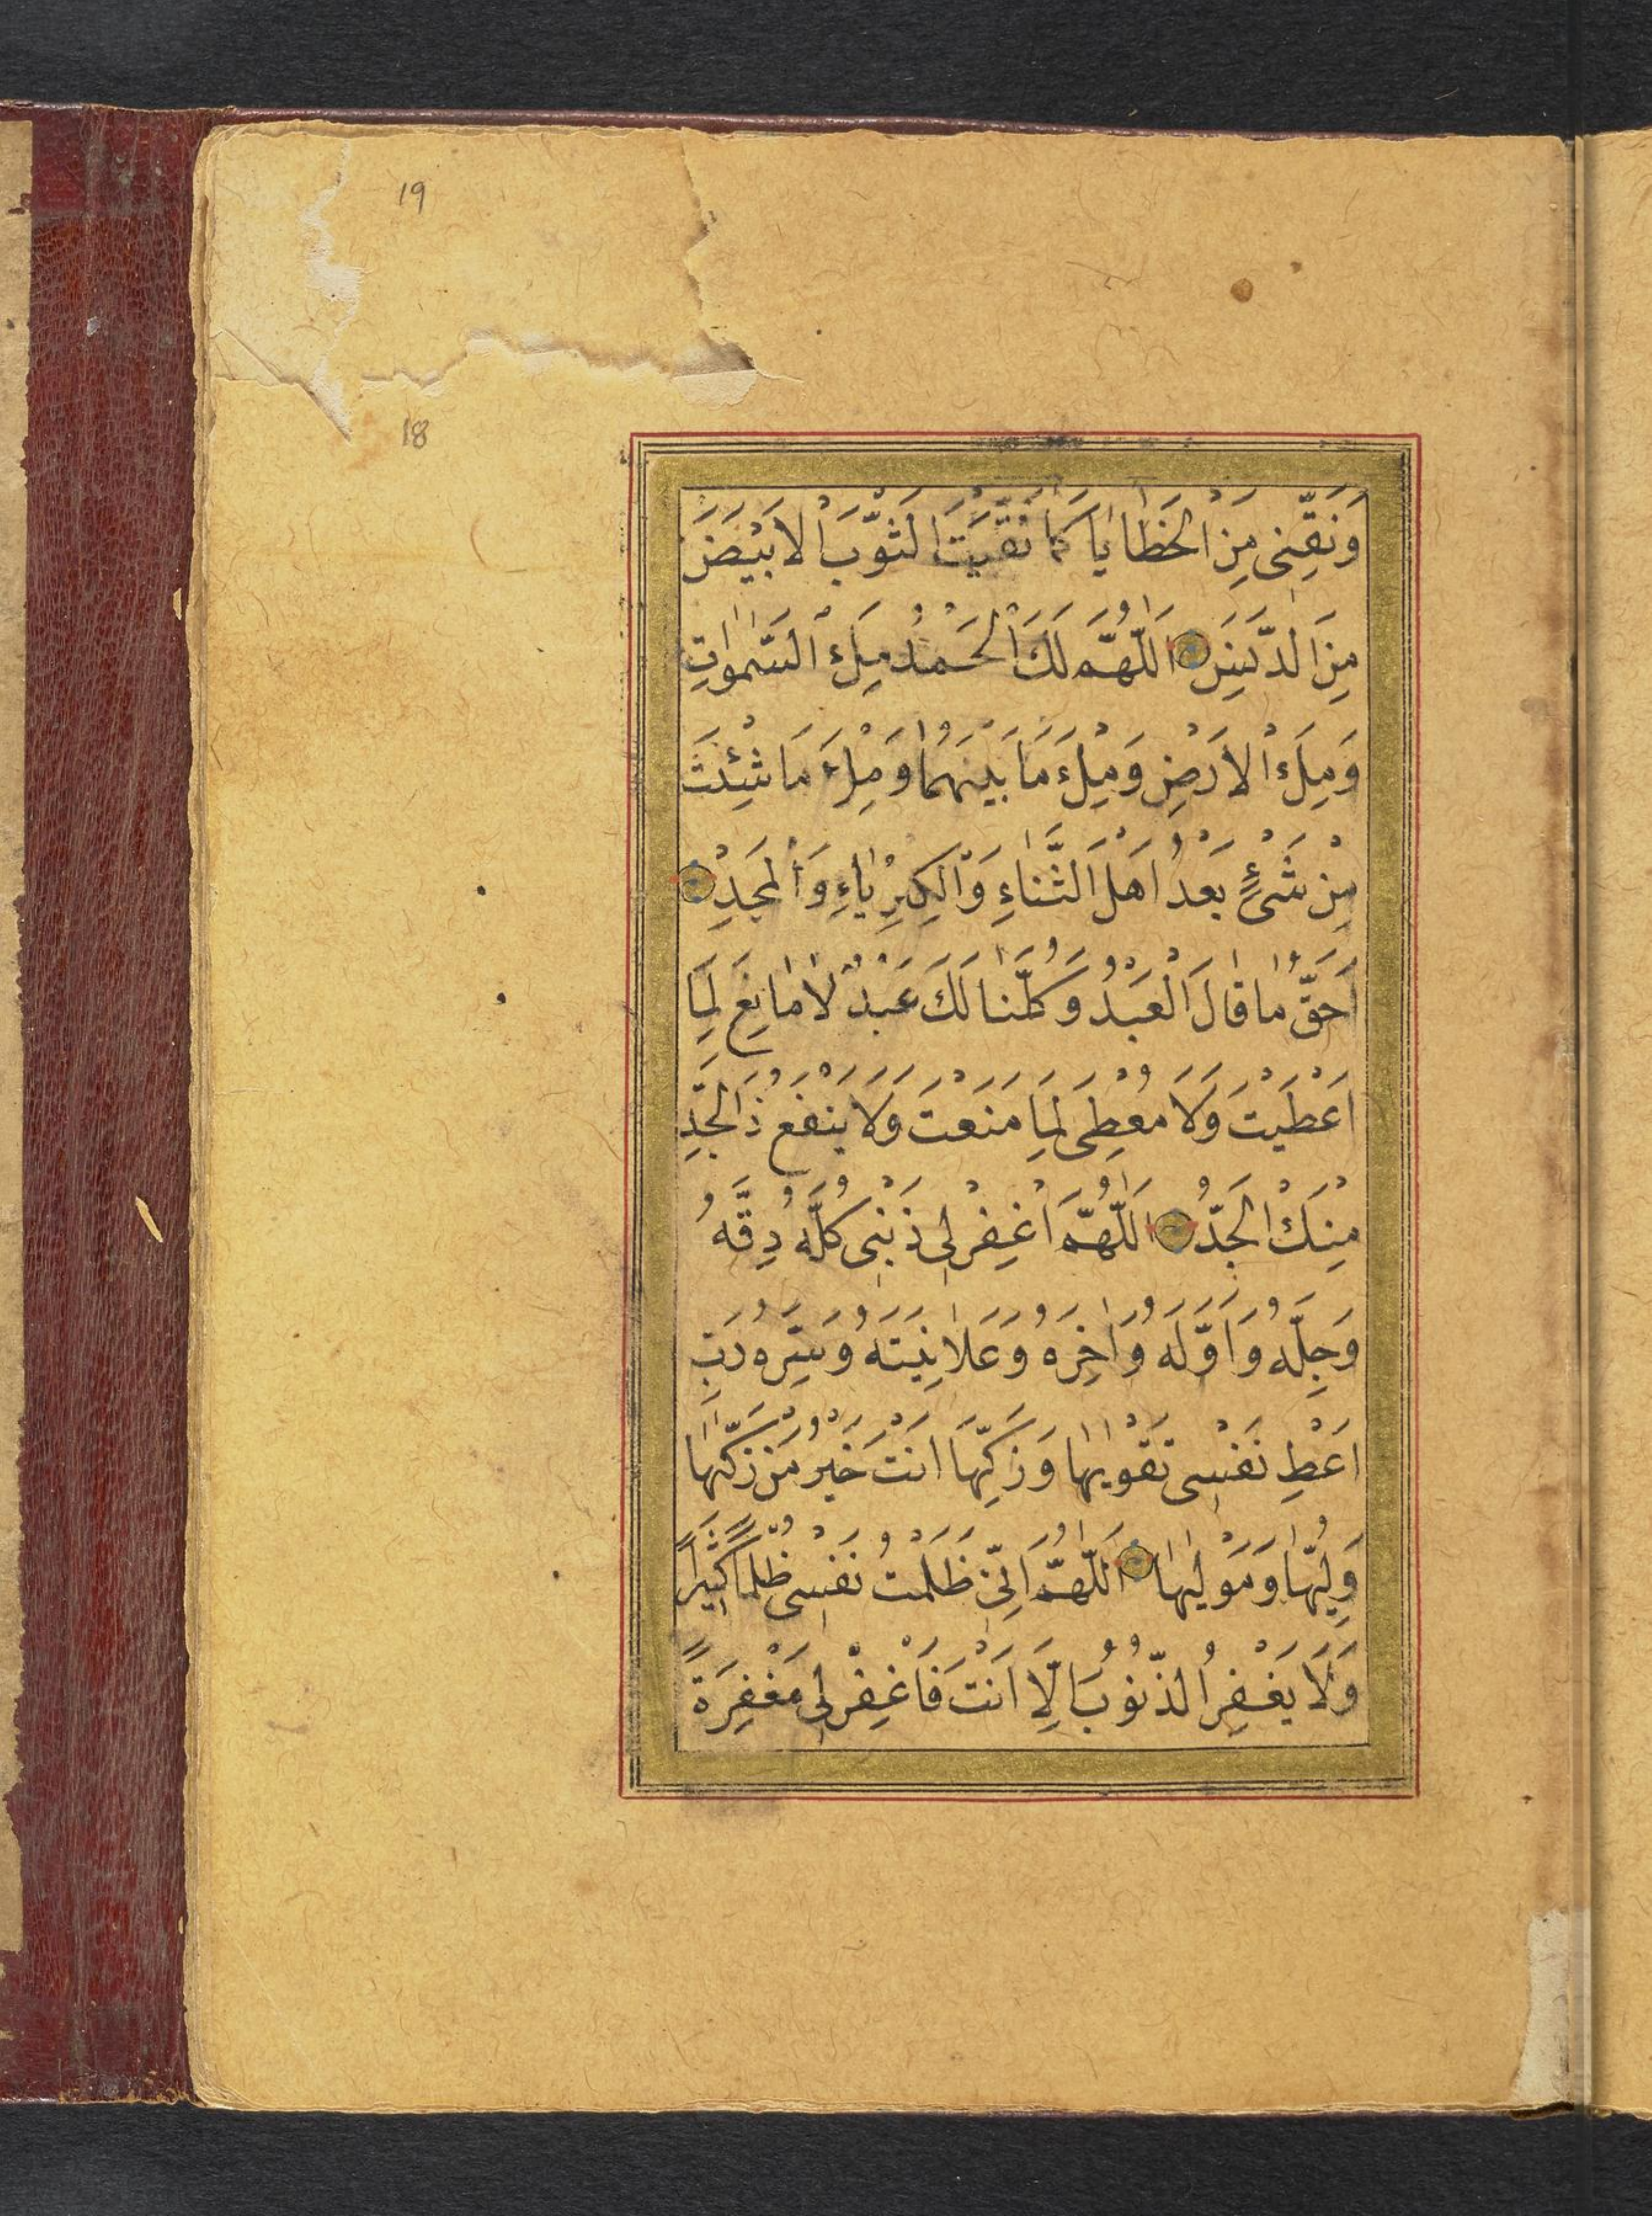 19
18
وَنَقِّنِى مِنَ الْخَطَايَا كَمَا نَقَّيْتَ الثَّوْبَ الْاَبْيَضَ
مِنَ الدَّنَسِ اَللّٰهُمَّ لَكَ الْحَمْدُ مِلْءَ السَّمٰوَاتِ
وَمِلْءَ الْاَرْضِ وَمِلْءَ مَا بَيْنَهُمَا وَمِلْءَ مَا شِئْتَ
مِنْ شَىْءٍ بَعْدُ اَهْلَ الثَّنَاءِ وَالْكِبْرِيَاءِ وَالْمَجْدِ
اَحَقُّ مَا قَالَ الْعَبْدُ وَكُلُّنَا لَكَ عَبْدٌ لَا مَانِعَ لِمَا
اَعْطَيْتَ وَلَا مُعْطِىَ لِمَا مَنَعْتَ وَلَا يَنْفَعُ ذَا الْجَدِّ
مِنْكَ الْجَدُّ اَللّٰهُمَّ اغْفِرْ لِى ذَنْبِى كُلَّهُ دِقَّهُ
وَجِلَّهُ وَاَوَّلَهُ وَاٰخِرَهُ وَعَلَانِيَتَهُ وَسِرَّهُ رَبِّ
اَعْطِ نَفْسِى تَقْوٰيهَا وَزَكِّهَا اَنْتَ خَيْرُ مَنْ زَكّٰهَا
وَلِيُّهَا وَمَوْلٰيهَا اَللّٰهُمَّ اِنِّى ظَلَمْتُ نَفْسِى ظُلْمًا كَثِيرًا
وَلَا يَغْفِرُ الذُّنُوبَ اِلَّا اَنْتَ فَاغْفِرْ لِى مَغْفِرَةً